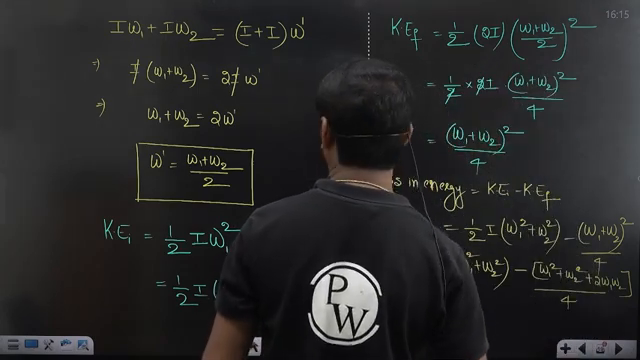 Iω₁ + Iω₂ = (I+I)ω'
⇒ I(ω₁+ω₂) = 2Iω'
⇒ ω₁+ω₂ = 2ω'
ω' = (ω₁+ω₂)/2
K·Eᵢ = 1/2 Iω₁²
= 1/2 I(
16:15
K·E_f = 1/2 (2I) ((ω₁+ω₂)/2)²
= 1/2 × 2I (ω₁+ω₂)²/4
= (ω₁+ω₂)²/4
in energy = K·Eᵢ - K·E_f
= 1/2 I(ω₁²+ω₂²) - (ω₁+ω₂)²/4
+ω₂²) - [ω₁²+ω₂²+2ω₁ω₂]/4
P
W